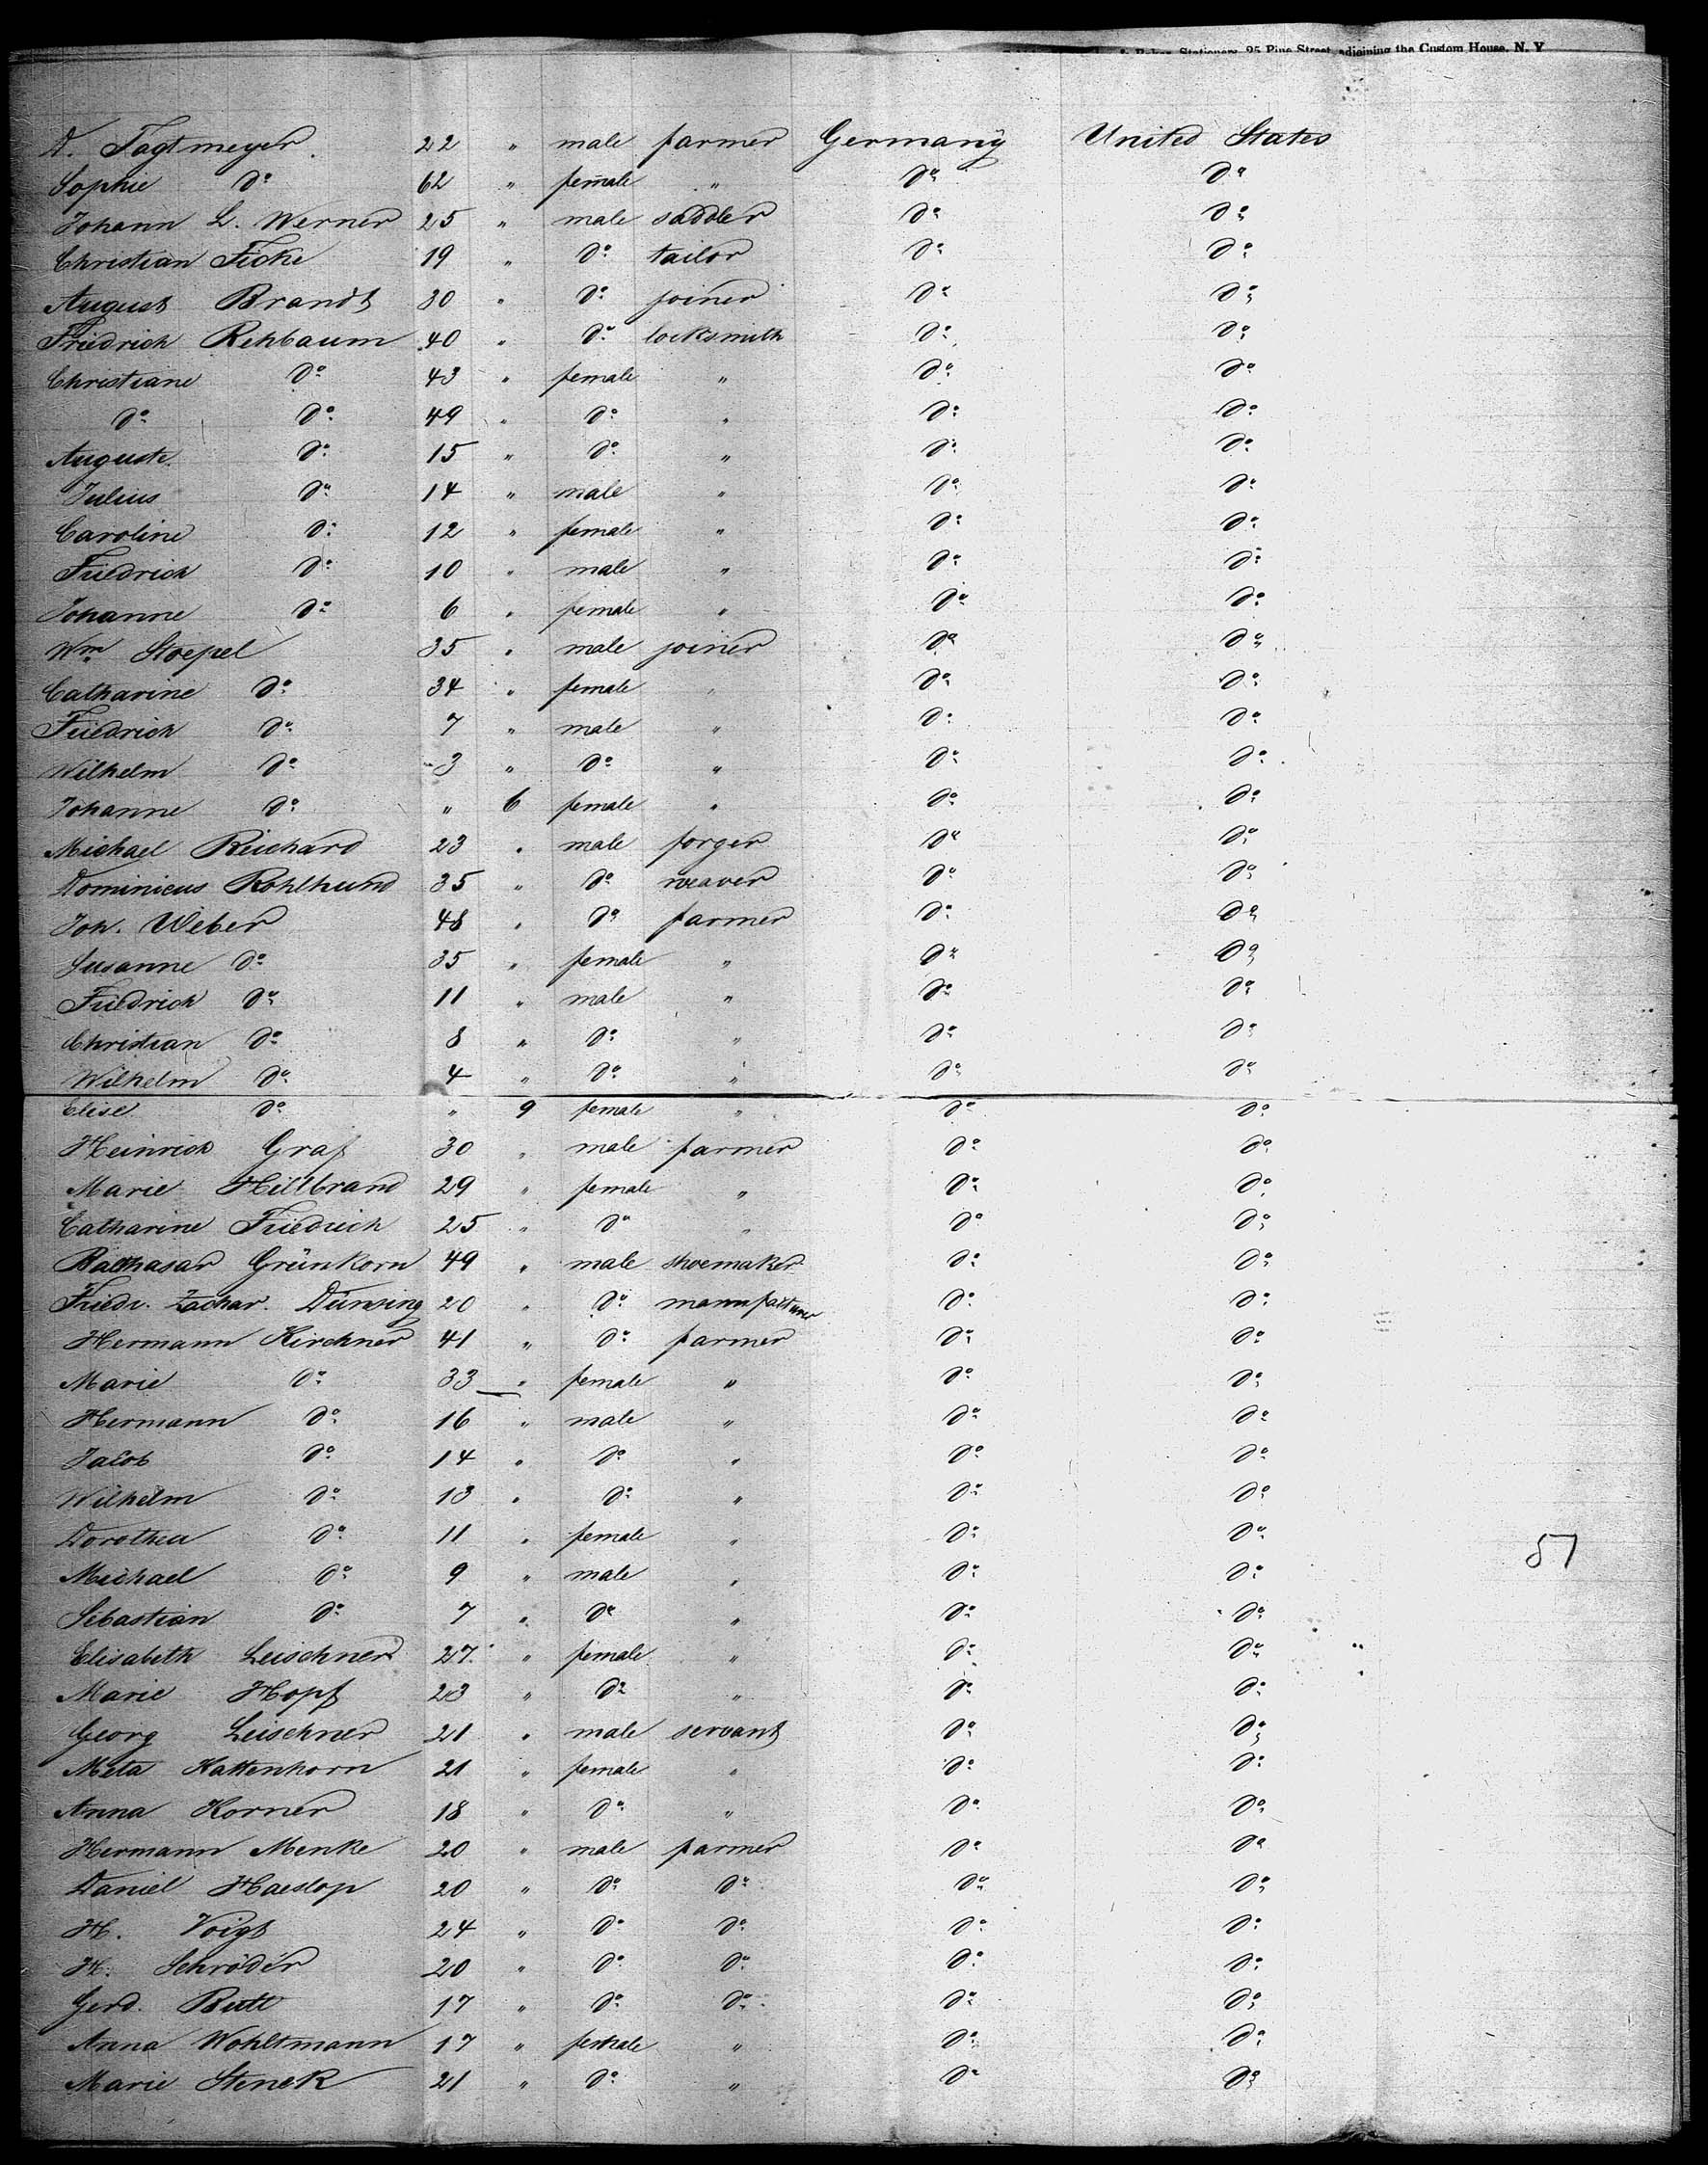 Stationers, 25 Pine Street, adjoining the Custom House, N. Y.
D. Fogtmeyer. 22 " male farmer Germany United States
Sophie do 62 " female " do do
Johann L. Werner 25 " male saddler do do
Christian Ficke 19 " do tailor do do
August Brandt 30 " do joiner do do
Friedrich Rehbaum 40 " do locksmith do do
Christiane do 43 " female " do do
do do 49 " do " do do
Auguste do 15 " do " do do
Julius do 14 " male " do do
Caroline do 12 " female " do do
Friedrich do 10 " male " do do
Johanne do 6 " female " do do
Wm Stoepel 35 " male joiner do do
Catharine do 34 " female " do do
Friedrich do 7 " male " do do
Wilhelm do 3 " do " do do
Johanne do " 6 female " do do
Michael Reichard 23 " male forger do do
Dominicus Rohlhund 35 " do weaver do do
Joh. Weber 48 " do farmer do do
Susanne do 35 " female " do do
Friedrich do 11 " male " do do
Christian do 8 " do " do do
Wilhelm do 4 " do " do do
Elise do " 9 female " do do
Heinrich Graf 30 " male farmer do do
Marie Hillbrand 29 " female " do do
Catharine Friedrich 25 " do " do do
Balthasar Grünkorn 49 " male shoemaker do do
Friedr. Zachar. Dünsing 20 " do manufacturer do do
Hermann Kirchner 41 " do farmer do do
Marie do 33 " female " do do
Hermann do 16 " male " do do
Jacob do 14 " do " do do
Wilhelm do 13 " do " do do
Dorothea do 11 " female " do do
Michael do 9 " male " do do
Sebastian do 7 " do " do do
Elisabeth Leischner 27 " female " do do
Marie Hopf 23 " do " do do
Georg Leischner 21 " male servant do do
Meta Kattenhorn 21 " female " do do
Anna Korner 18 " do " do do
Hermann Menke 20 " male farmer do do
Daniel Haeslop 20 " do do do do
H. Voigt 24 " do do do do
H. Schröder 20 " do do do do
Gerd. Butt 17 " do do do do
Anna Wohltmann 17 " female " do do
Marie Stenek 21 " do " do do
57